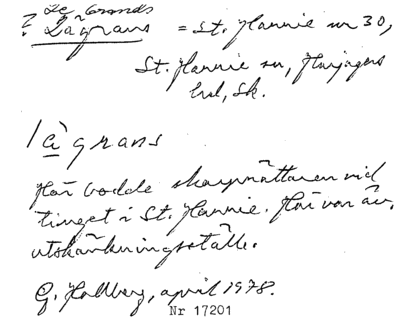 ? Le Grands
Lagrans = St. Hannie nr 30,
St. Hannie sn, Harjagers
hd, Sk.
lagrans
Här bodde skarprättaren vid
tinget i St. Hannie. Här var äv.
utskänkningsställe.
G. Hallberg, april 1978.
Nr 17201